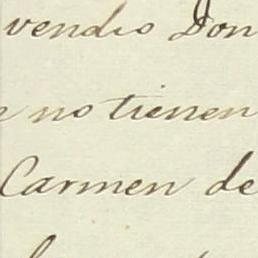 vendio Don
no tienen
Carmen de